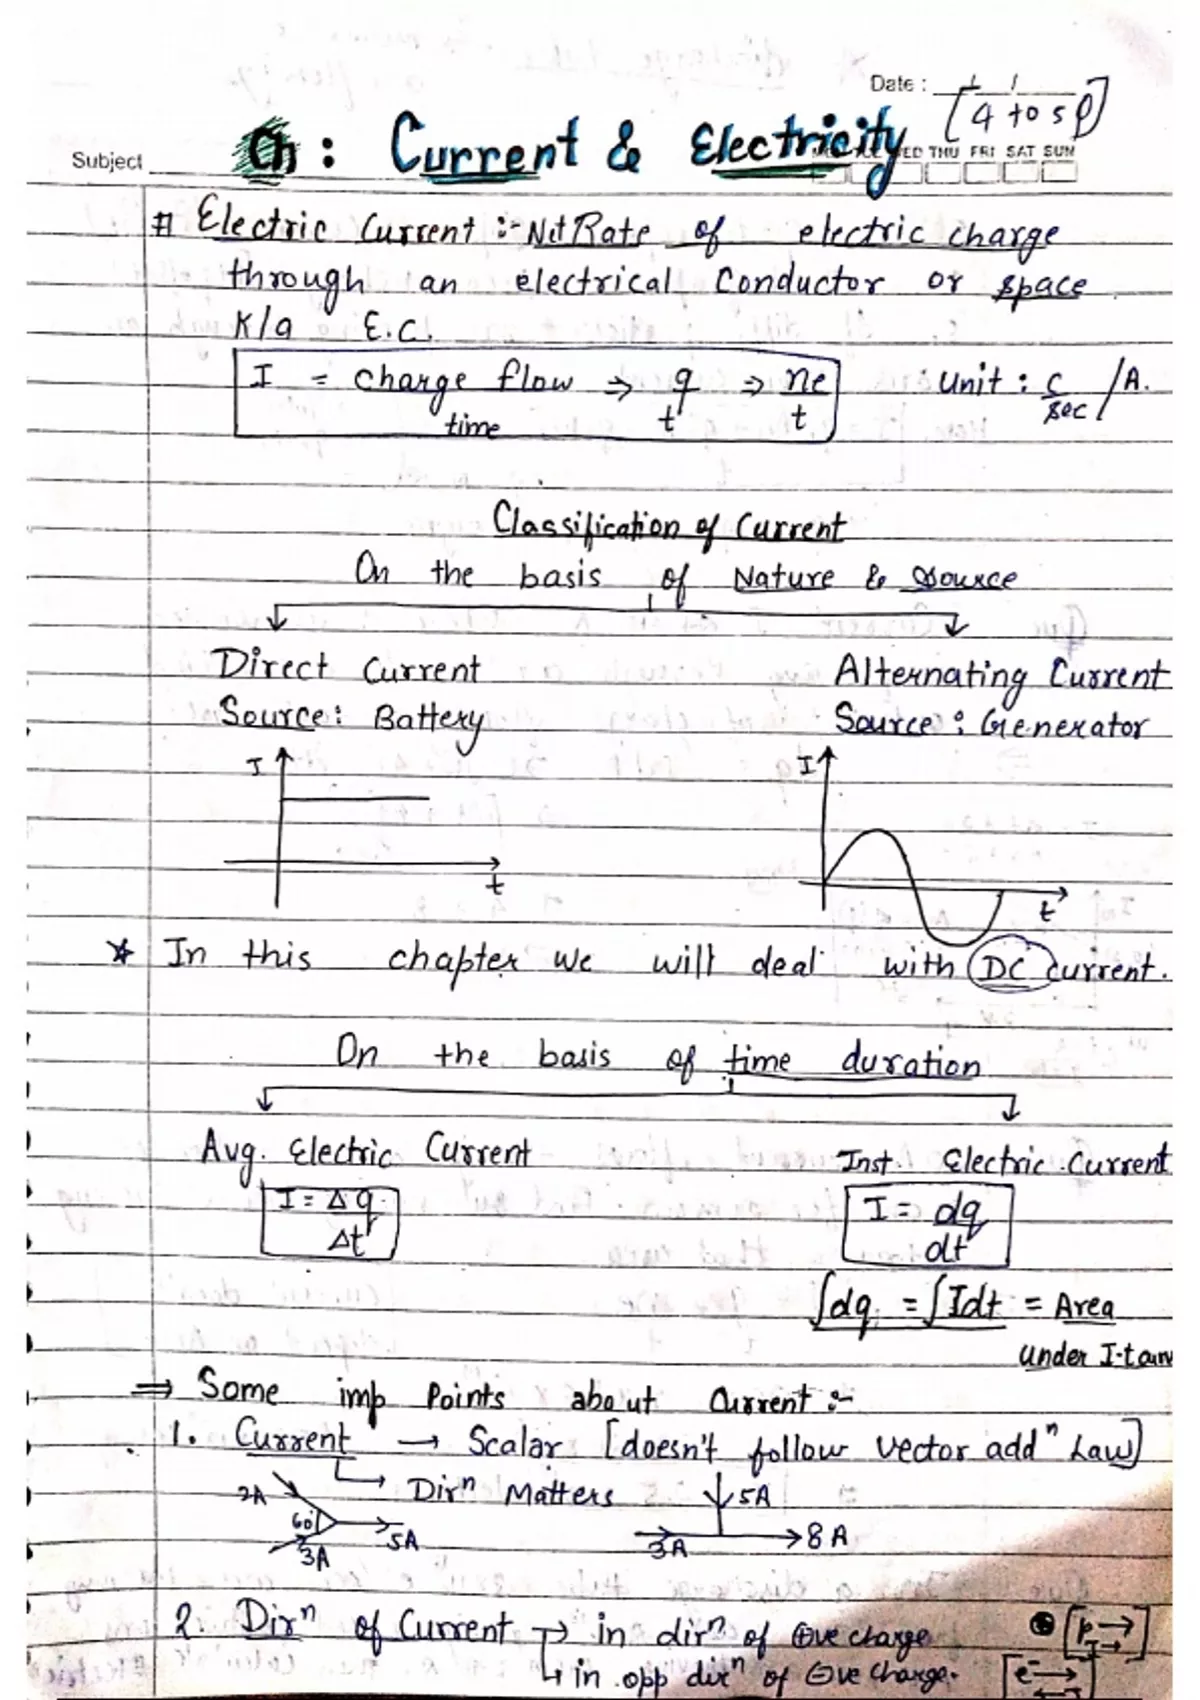 Date :
[4 to 5 P]
Subject
Ch : Current & Electricity
WED THU FRI SAT SUN
# Electric Current :- Net Rate of electric charge
through an electrical Conductor or space
K/a E.C.
I = charge flow / time ⇒ q / t ⇒ ne / t Unit : C / sec / A.
Classification of Current
On the basis of Nature & Source
Direct Current
Alternating Current
Source : Battery
Source : Generator
I
t
I
t
* In this chapter we will deal with DC current.
On the basis of time duration
Avg. Electric Current
Inst. Electric Current
I = Δq / Δt
I = dq / dt
∫dq = ∫Idt = Area
under I-t curv
⇒ Some imp Points about Current :-
1. Current → Scalar [doesn't follow vector addⁿ Law]
↳ Dirⁿ Matters
2A
60°
3A
5A
5A
3A
8A
2. Dirⁿ of Current → in dirⁿ of ⊕ve charge [p→]
↳ in opp dirⁿ of ⊖ve charge. [e⁻→]